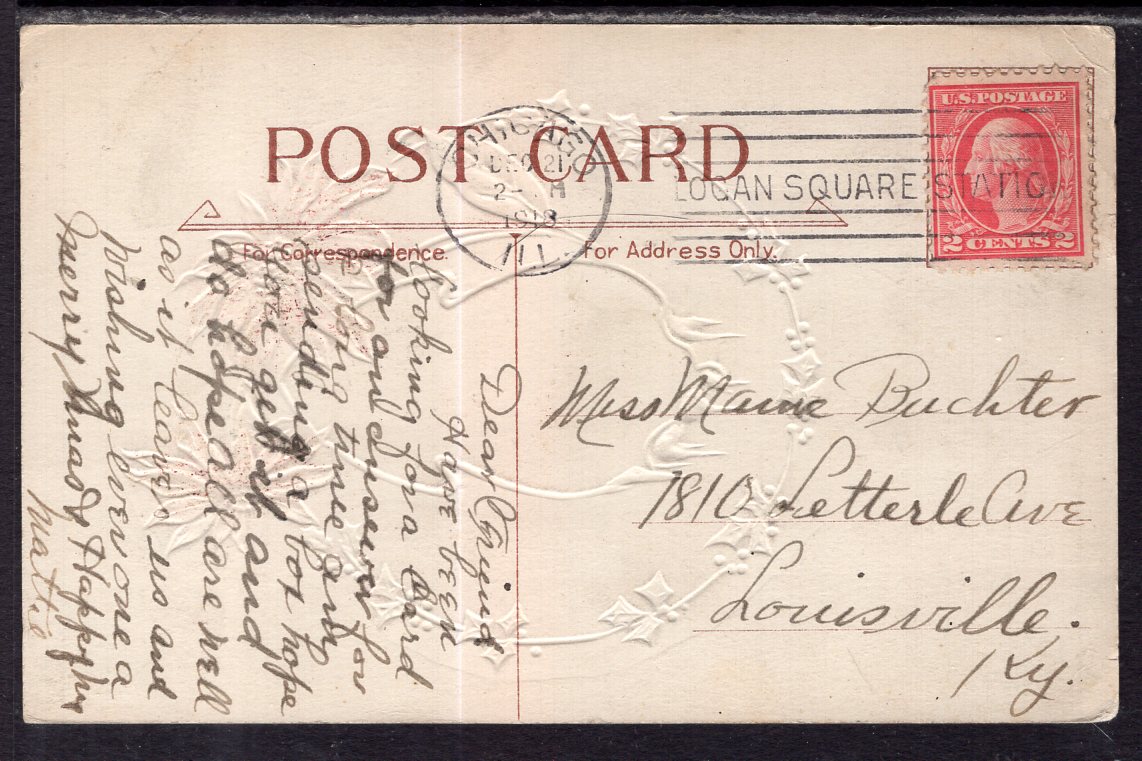 POST CARD
CHICAGO
DEC 21
2- M
1918
ILL
LOGAN SQUARE STATIO
U.S. POSTAGE
2 CENTS 2
For Correspondence.
For Address Only.
Dear Friend
Have been
looking for a Card
or and answer for
long time am
sending a box hope
you get it and
do hope all are well
as it leaves us and
Wishing everyone a
merry Xmas & Happy
Mattie
Miss Mame Buchter
1810 Letterle Ave
Louisville.
Ky.